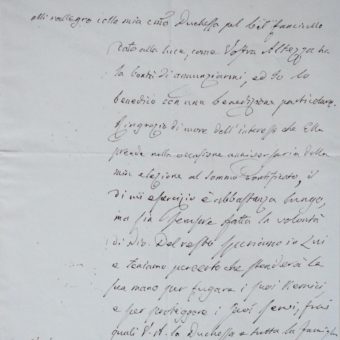 Mi rallegro colla mia cara Duchessa pel bel fanciullo
dato alla luce, come Vostra Altezza ha
la bontà di annunziarmi, ed io lo
benedico con una benedizione particolare.
Ringrazio di nuovo dell'interesse che Ella
prende nella occasione anniversaria della
mia elezione al Sommo Pontificato, il
di cui esercizio è abbastanza lungo,
ma sia sempre fatta la volontà
di Dio. Del resto speriamo in Lui
e teniamo per certo che stenderà la
sua mano per fugare i suoi Nemici
e per proteggere i suoi servi, frai
quali V. A. la Duchessa e tutta la famiglia